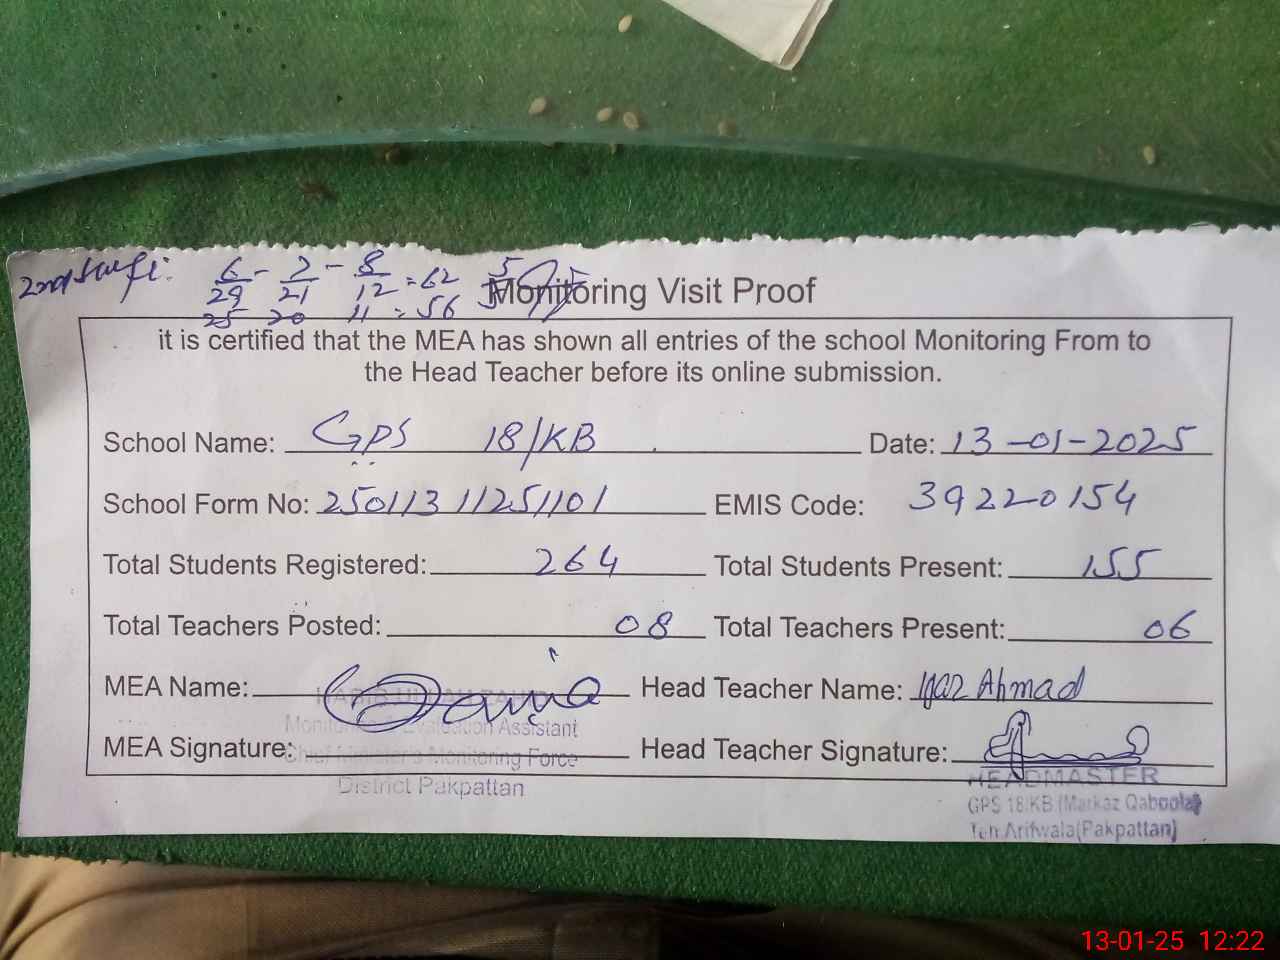 6/29 - 7/21 - 8/12 = 62
25 20 11 = 56
Monitoring Visit Proof
it is certified that the MEA has shown all entries of the school Monitoring From to
the Head Teacher before its online submission.
School Name: GPS 18/KB Date: 13-01-2025
School Form No: 25011311251101 EMIS Code: 39220154
Total Students Registered: 264 Total Students Present: 155
Total Teachers Posted: 08 Total Teachers Present: 06
MEA Name: Head Teacher Name: Ijaz Ahmad
Monitoring & Evaluation Assistant
MEA Signature: Head Teacher Signature:
Chief Minister's Monitoring Force
District Pakpattan
HEADMASTER
GPS 18/KB (Markaz Qaboola)
Teh Arifwala(Pakpattan)
13-01-25 12:22